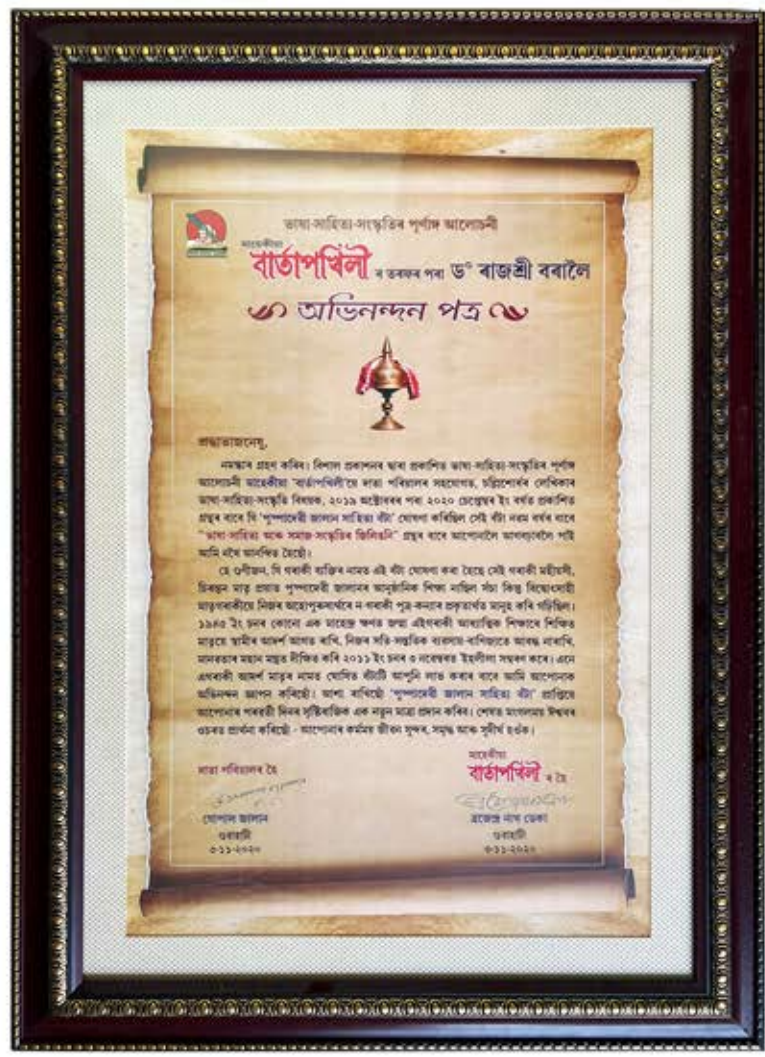 ভাষা-সাহিত্য-সংস্কৃতিৰ পূৰ্ণাঙ্গ আলোচনী
মাহেকীয়া
বাৰ্তাপখিলী ৰ তৰফৰ পৰা ড° ৰাজশ্ৰী বৰালৈ
অভিনন্দন পত্ৰ
শ্ৰদ্ধাভাজনেষু,
নমস্কাৰ গ্ৰহণ কৰিব। বিশাল প্ৰকাশনৰ দ্বাৰা প্ৰকাশিত ভাষা-সাহিত্য-সংস্কৃতিৰ পূৰ্ণাঙ্গ
আলোচনী মাহেকীয়া 'বাৰ্তাপখিলী'য়ে দাতা পৰিয়ালৰ সহযোগত, চল্লিশোৰ্ধৰ লেখিকাৰ
ভাষা-সাহিত্য-সংস্কৃতি বিষয়ক, ২০১৯ অক্টোবৰৰ পৰা ২০২০ চেপ্তেম্বৰ ইং বৰ্ষত প্ৰকাশিত
গ্ৰন্থৰ বাবে যি 'পুষ্পাদেৱী জালান সাহিত্য বঁটা' ঘোষণা কৰিছিল সেই বঁটা নৱম বৰ্ষৰ বাবে
"ভাষা-সাহিত্য আৰু সমাজ-সংস্কৃতিৰ জিলিঙনি" গ্ৰন্থৰ বাবে আপোনালৈ আগবঢ়াবলৈ পাই
আমি নথৈ আনন্দিত হৈছোঁ।
হে গুণীজন, যি গৰাকী ব্যক্তিৰ নামত এই বঁটা ঘোষণা কৰা হৈছে সেই গৰাকী মহীয়সী,
চিৰন্তন মাতৃ প্ৰয়াত পুষ্পাদেৱী জালানৰ আনুষ্ঠানিক শিক্ষা নাছিল সঁচা কিন্তু বিদ্যোৎসাহী
মাতৃগৰাকীয়ে নিজৰ অহোপুৰুষাৰ্থৰে ন গৰাকী পুত্ৰ-কন্যাৰ প্ৰকৃতাৰ্থত মানুহ কৰি গঢ়িছিল।
১৯৪৫ ইং চনৰ কোনো এক মাহেন্দ্ৰ ক্ষণত জন্ম এইগৰাকী আধ্যাত্মিক শিক্ষাৰে শিক্ষিত
মাতৃয়ে স্বামীৰ আদৰ্শ আগত ৰাখি, নিজৰ সতি-সন্ততিক ব্যৱসায়-বাণিজ্যতে আবদ্ধ নাৰাখি,
মানৱতাৰ মহান মন্ত্ৰত দীক্ষিত কৰি ২০১১ ইং চনৰ ৩ নৱেম্বৰত ইহলীলা সম্বৰণ কৰে। এনে
এগৰাকী আদৰ্শ মাতৃৰ নামত ঘোষিত বঁটাটি আপুনি লাভ কৰাৰ বাবে আমি আপোনাক
অভিনন্দন জ্ঞাপন কৰিছোঁ। আশা ৰাখিছোঁ 'পুষ্পাদেৱী জালান সাহিত্য বঁটা' প্ৰাপ্তিয়ে
আপোনাৰ পৰৱৰ্তী দিনৰ সৃষ্টিৰাজিক এক নতুন মাত্ৰা প্ৰদান কৰিব। শেষত মংগলময় ঈশ্বৰৰ
ওচৰত প্ৰাৰ্থনা কৰিছোঁ - আপোনাৰ কৰ্মময় জীৱন সুন্দৰ, সমৃদ্ধ আৰু সুদীৰ্ঘ হওঁক।
দাতা পৰিয়ালৰ হৈ
গোপাল জালান
গুৱাহাটী
৩-১১-২০২০
মাহেকীয়া
বাৰ্তাপখিলী ৰ হৈ
ব্ৰজেন্দ্ৰ নাথ ডেকা
গুৱাহাটী
৩-১১-২০২০